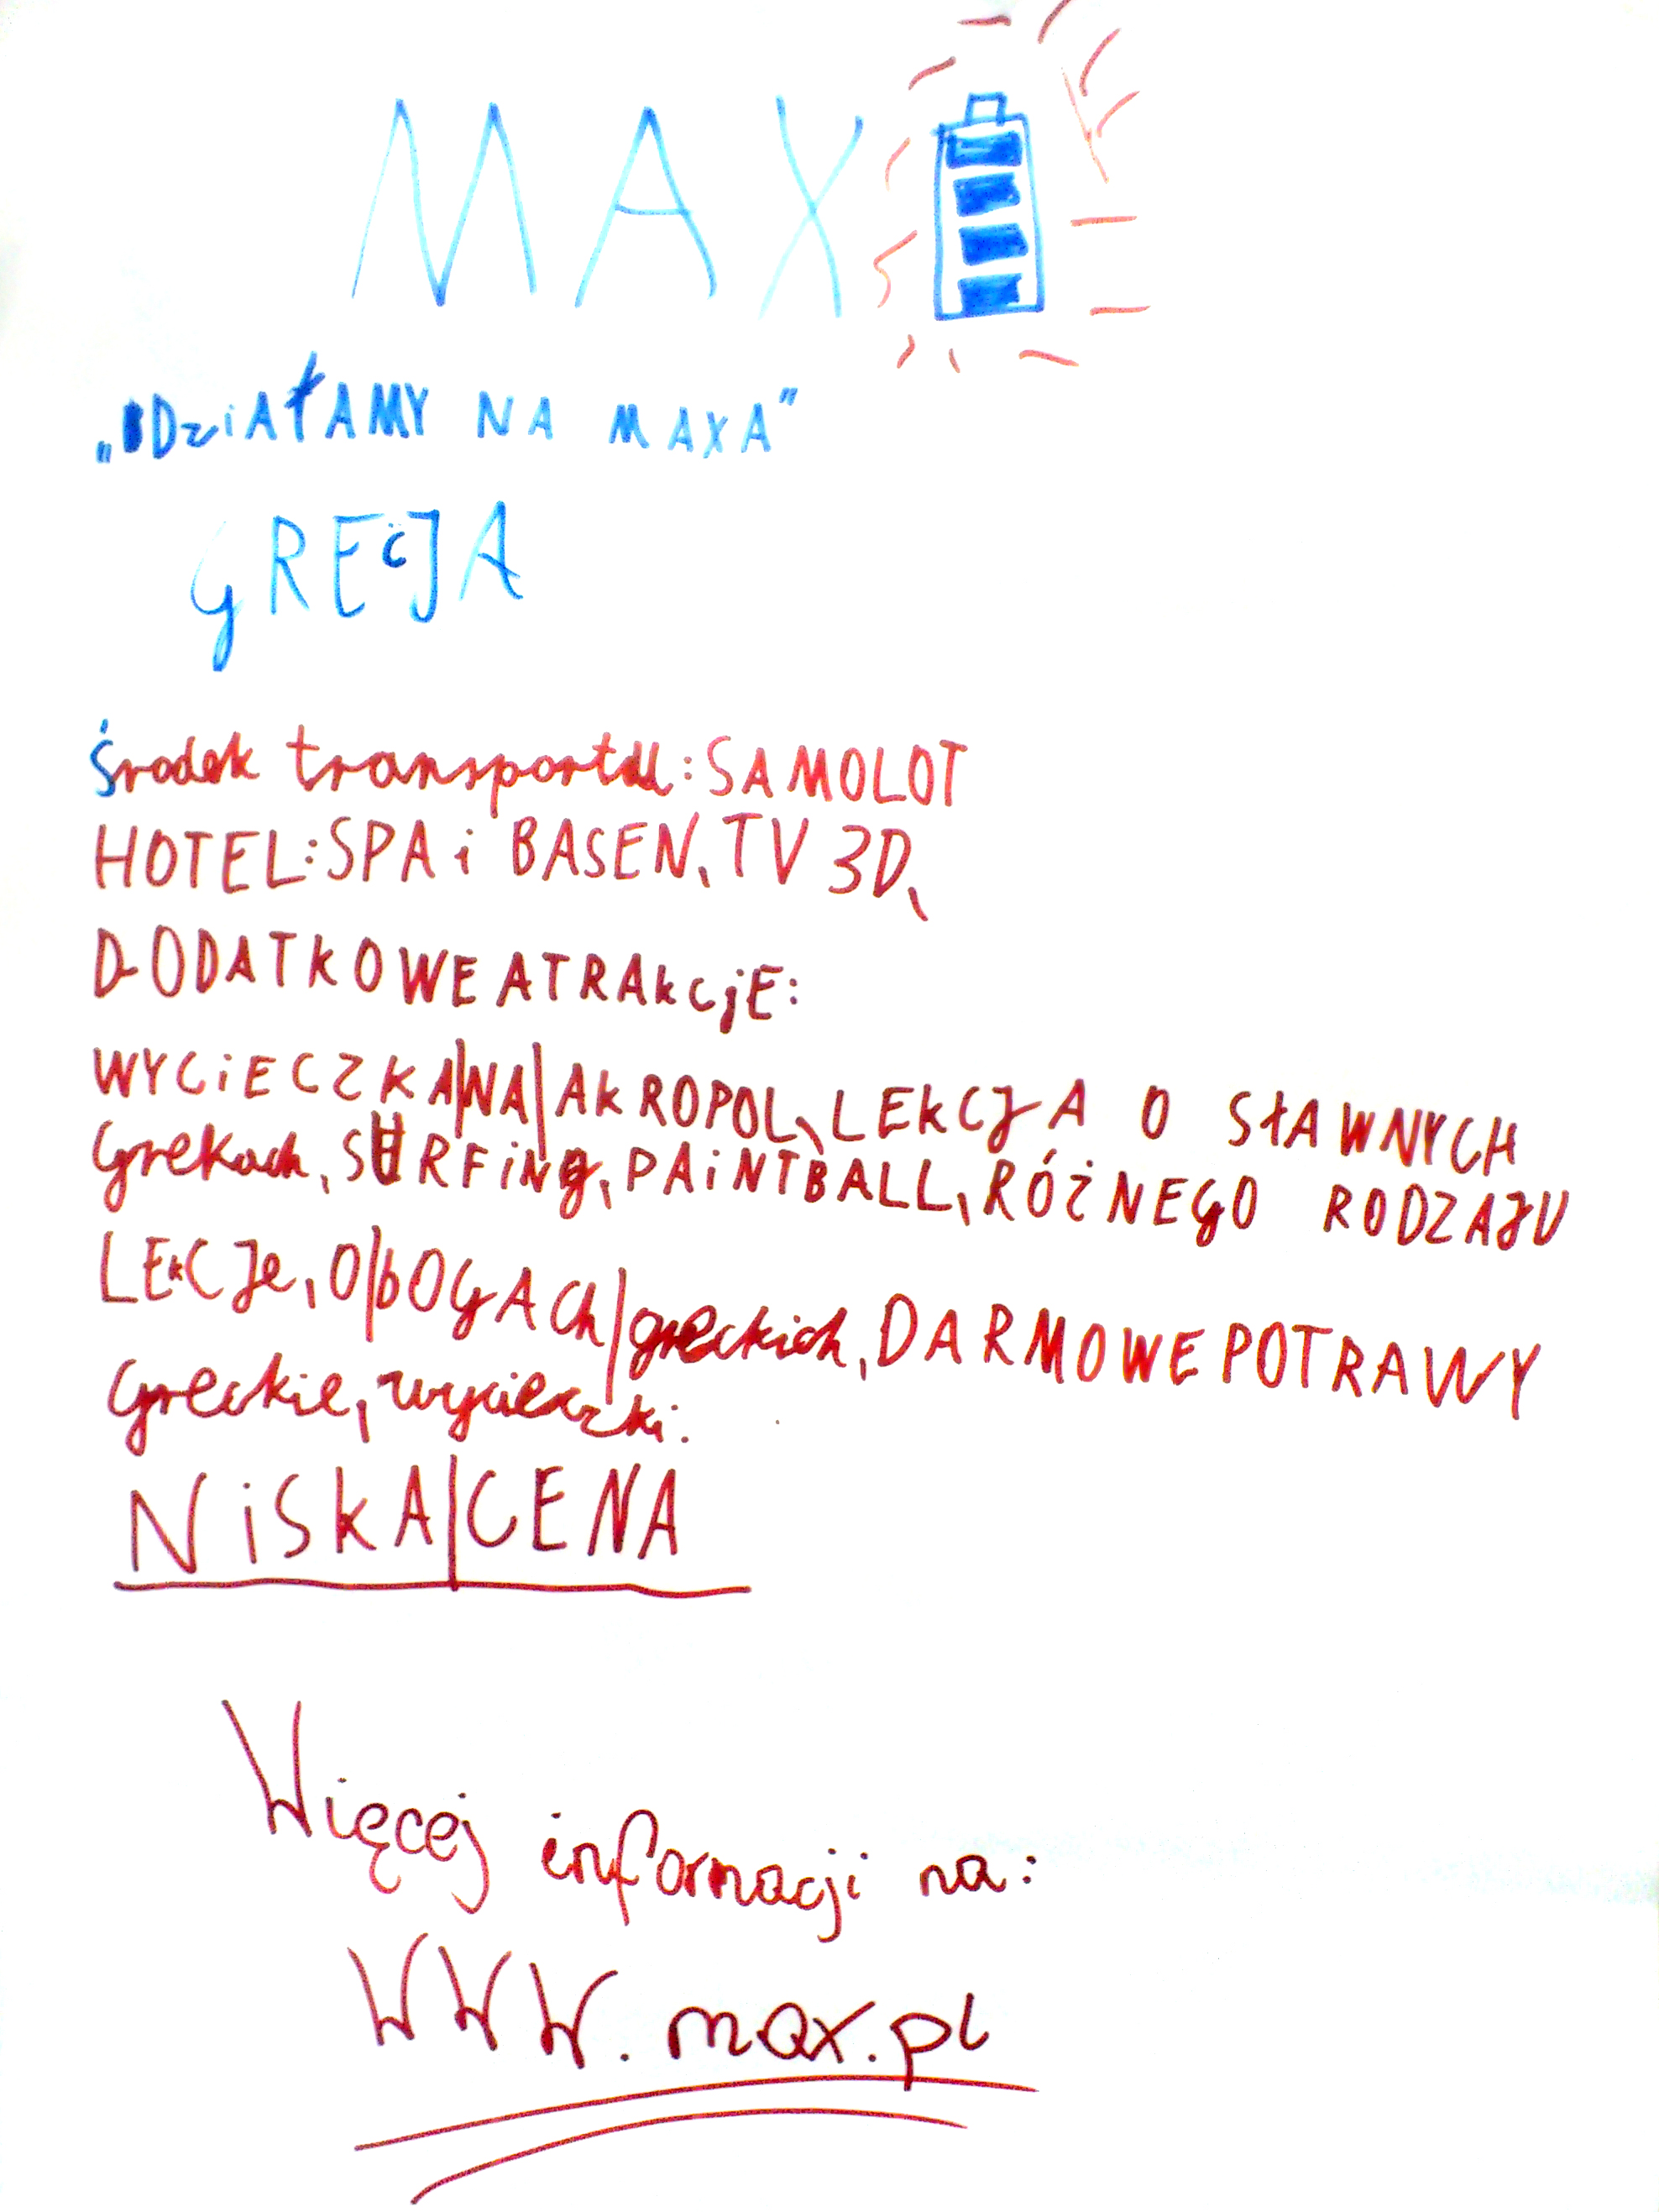 MAX
„DziAŁAMY NA MAXA”
GRECJA
środek transportu: SAMOLOT
HOTEL: SPA i BASEN, TV 3D,
DODATKOWE ATRAkcjE:
WYCiECZKA|NA|AkROPOL, LEkCJA O SŁAWNYCH
Grekach, SURFiNg, PAiNTBALL, RÓŻNEGO RODZAJU
LEkCJe, O|bOGACh|greckich, DARMOWE POTRAWY
Greckie, wycieczki:
NiSkA|CENA
Więcej informacji na:
WWW.max.pl